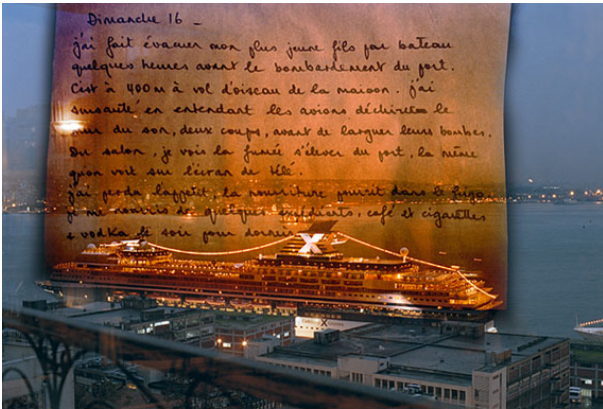 Dimanche 16 -
j'ai fait évacuer mon plus jeune fils par bateau
quelques heures avant le bombardement du port.
C'est à 400 m à vol d'oiseau de la maison. j'ai
sursauté en entendant les avions déchirer le
mur du son, deux coups, avant de larguer leurs bombes.
Du salon, je vois la fumée s'élever du port, la même
qu'on voit sur l'écran de télé.
j'ai perdu l'appétit, la nourriture pourrit dans le frigo.
je me nourris de quelques expédients, café et cigarettes
& vodka le soir pour dormir.
X